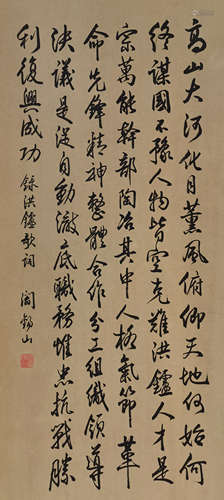 高山大河化日薰風俯仰天地何始何
終謀國不豫人物皆空克難洪鑪人才是
宗萬能幹部陶冶其中人格氣節革
命先鋒精神整體合作分工組織領導
決議是從自動澈底職務惟忠抗戰勝
利復興成功 錄洪鑪歌詞 閻錫山